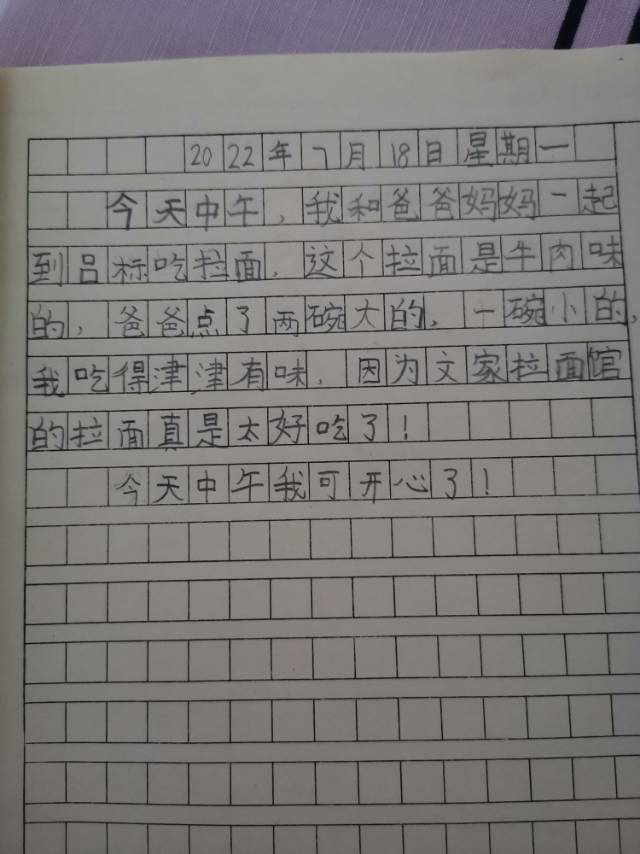 2022年7月18日星期一
今天中午，我和爸爸妈妈一起
到吕标吃拉面，这个拉面是牛肉味
的，爸爸点了两碗大的，一碗小的，
我吃得津津有味，因为文家拉面馆
的拉面真是太好吃了！
今天中午我可开心了！